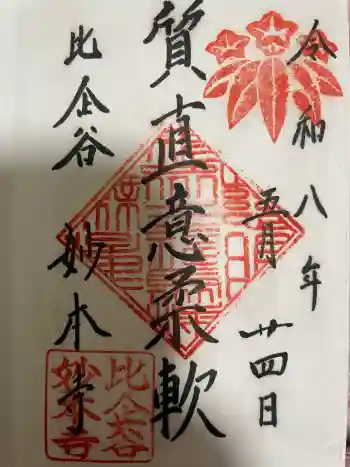 令和八年
五月廿四日
質直意柔軟
比企谷 妙本寺
比企谷
妙本寺